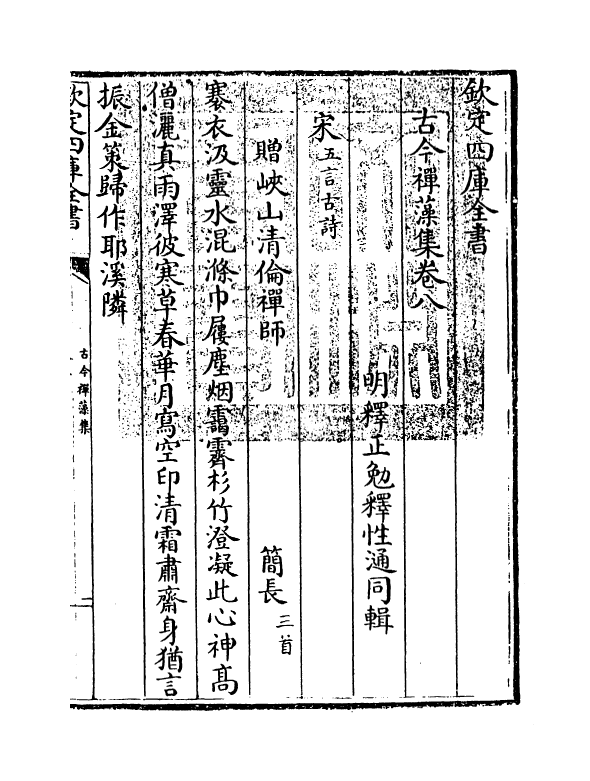 欽定四庫全書
古今禪藻集卷八
明釋正勉釋性通同輯
宋五言古詩
贈峽山清倫禪師
簡長三首
褰衣汲靈水混滌巾屨塵烟靄霽杉竹澄凝此心神髙
僧灑真雨澤彼寒草春華月寫空印清霜肅齋身猶言
振金策歸作耶溪隣
欽定四庫全書
古今禪藻集